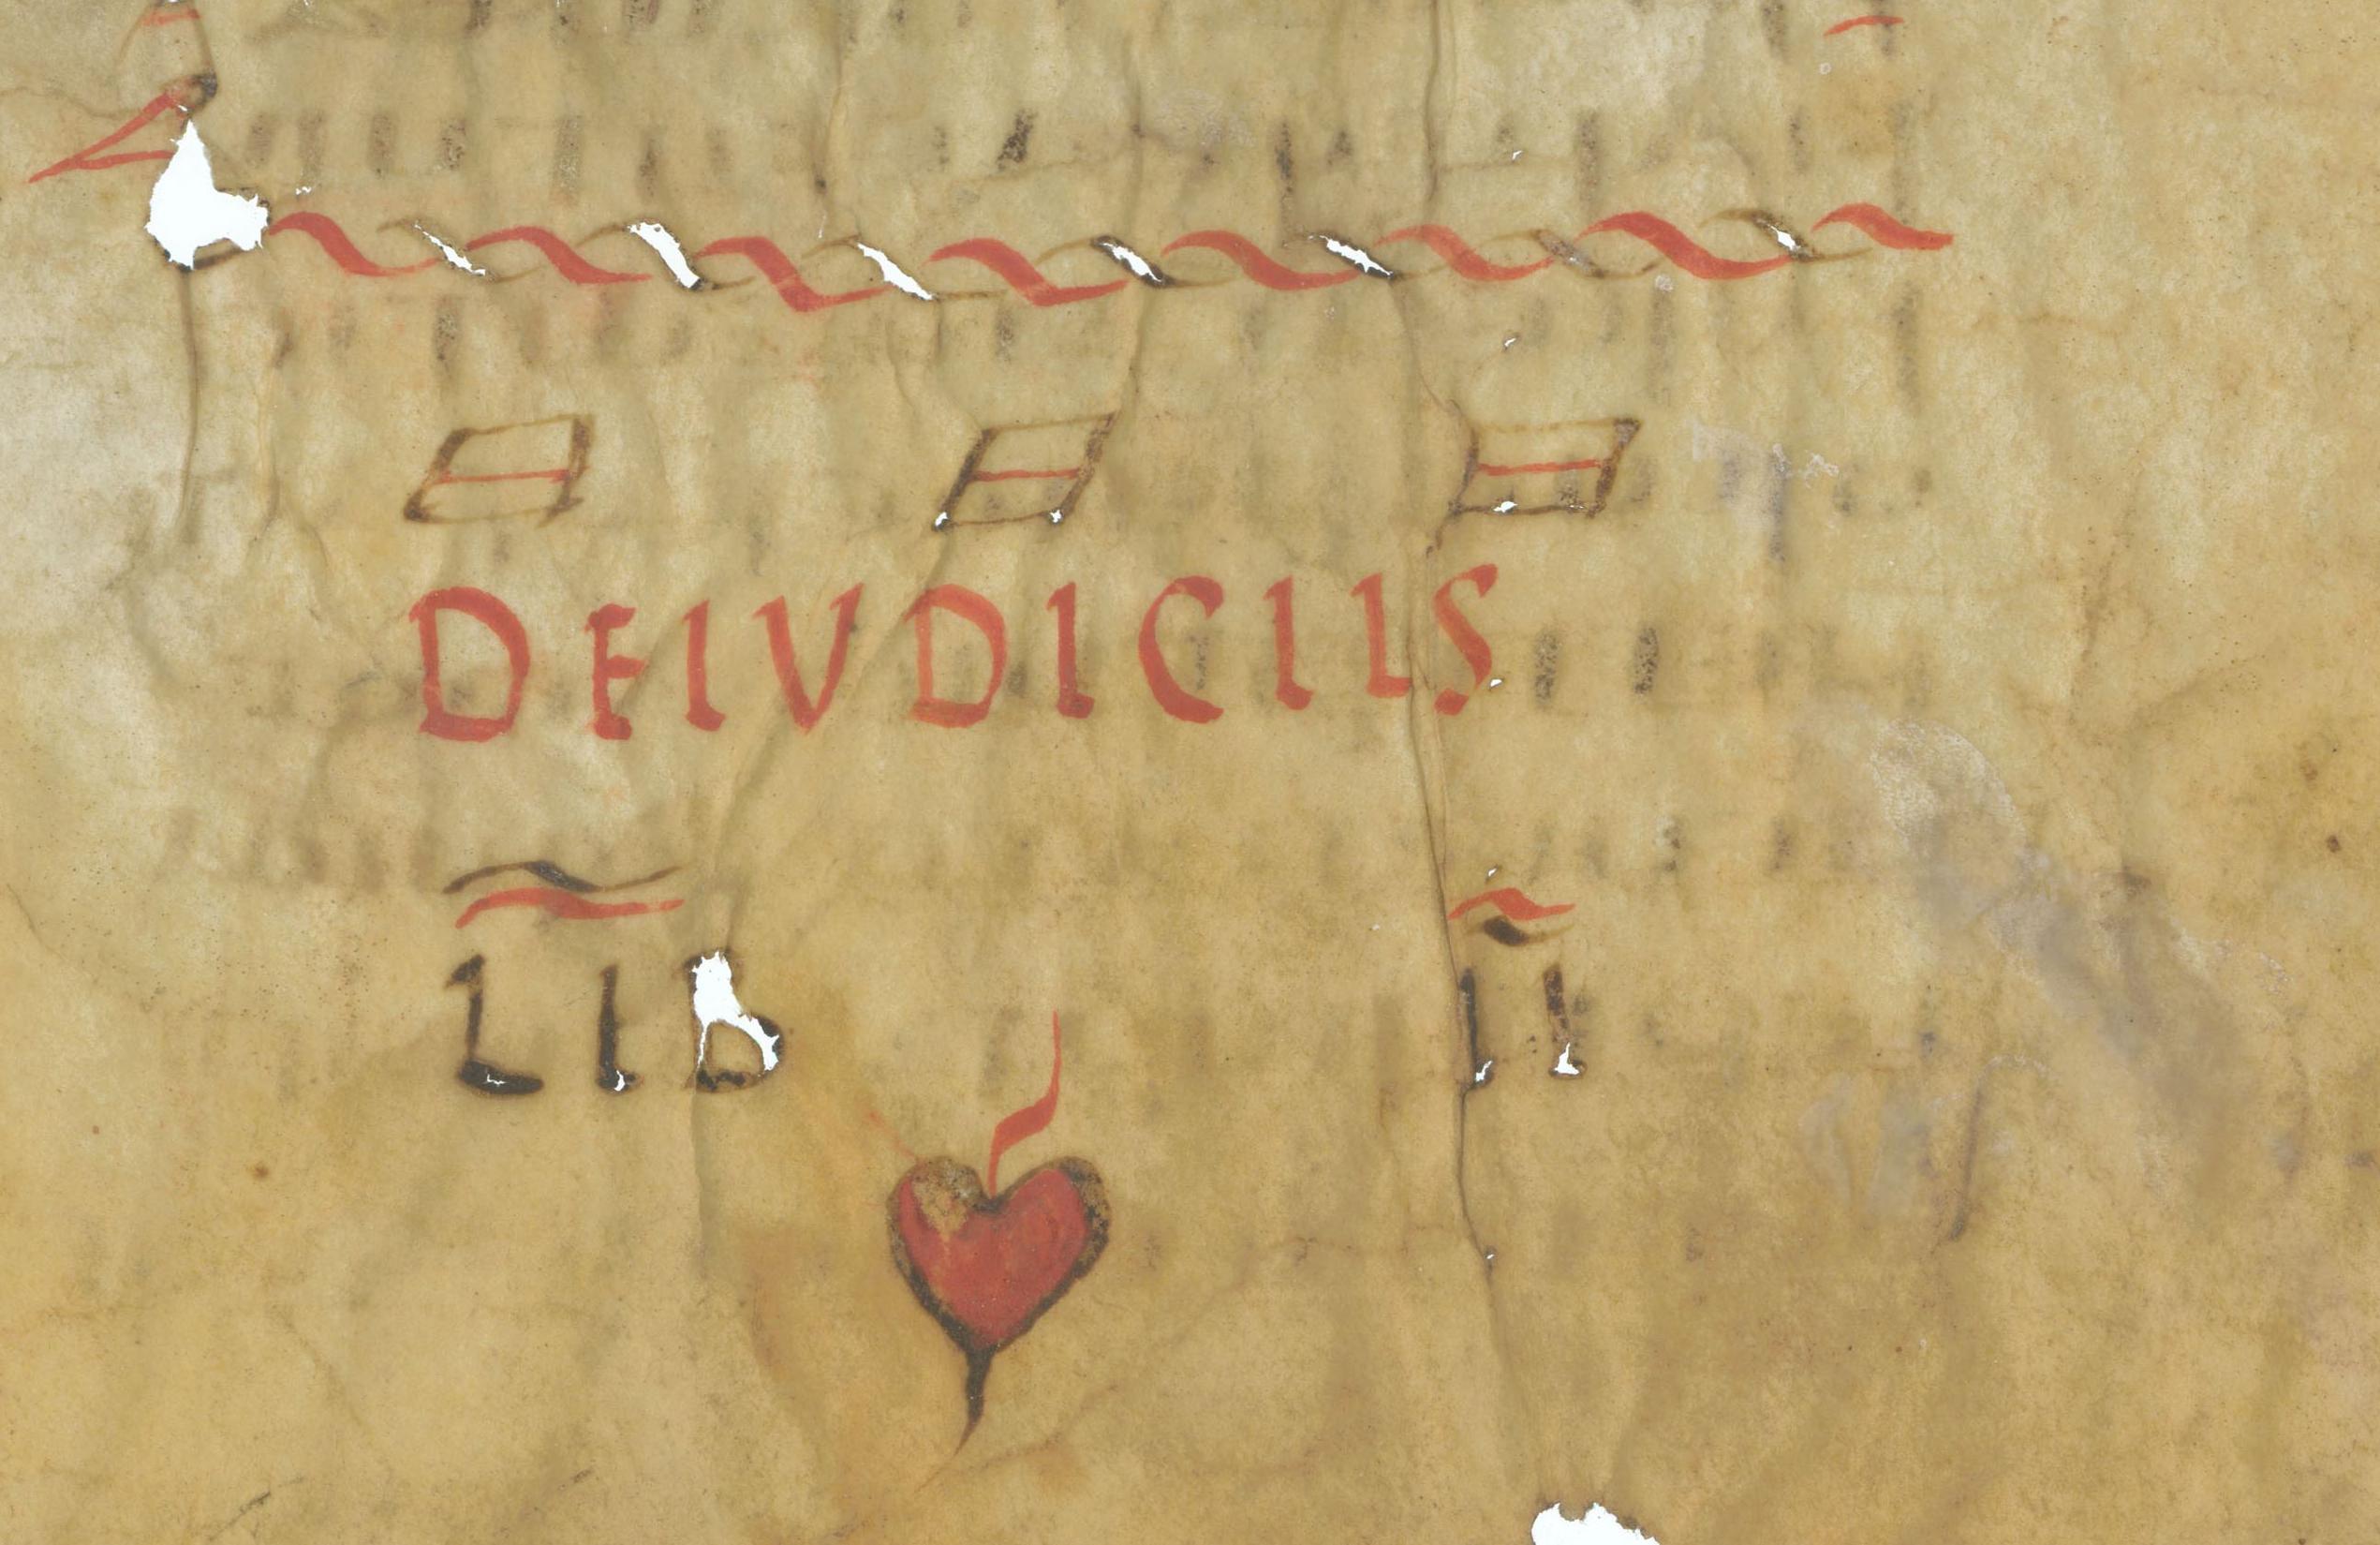 DEIUDICIIS
LIB II